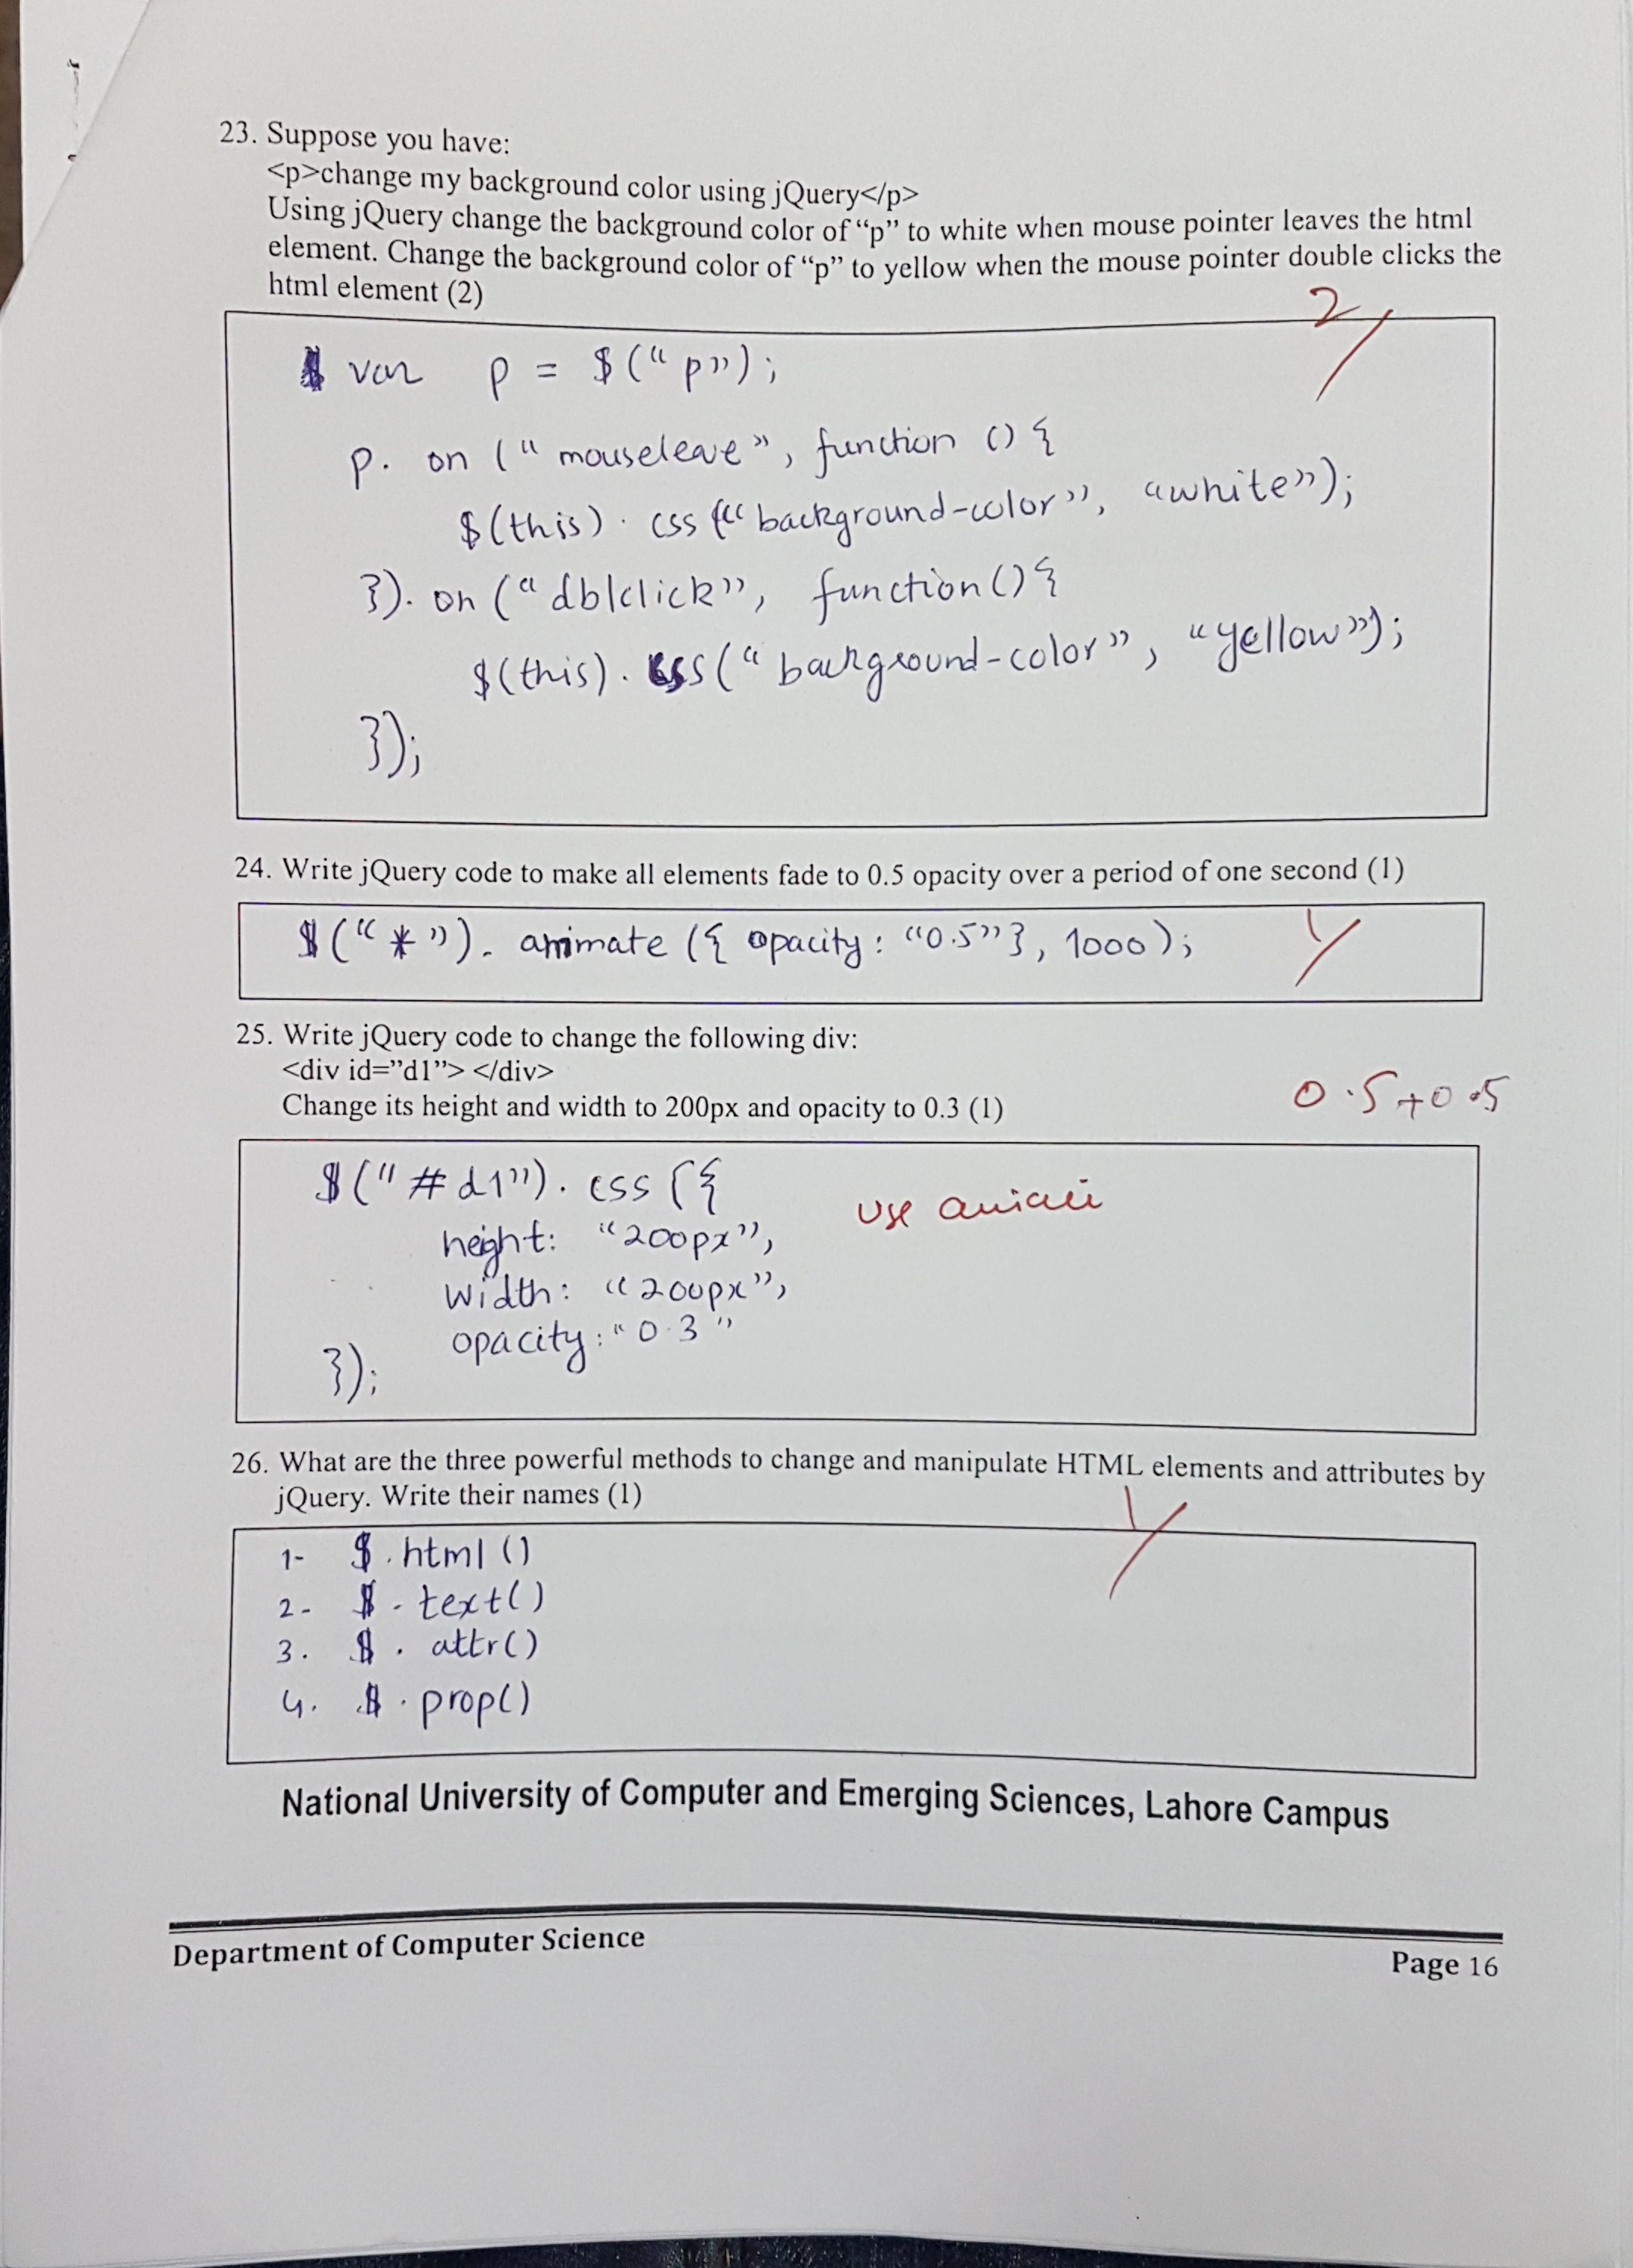 23. Suppose you have:
<p>change my background color using jQuery</p>
Using jQuery change the background color of “p” to white when mouse pointer leaves the html
element. Change the background color of “p” to yellow when the mouse pointer double clicks the
html element (2)
2
var p = $(“p”);
p. on (“mouseleave”, function () {
$(this). css (“background-color”, “white”);
}). on (“dblclick”, function() {
$(this). css(“background-color”, “yellow”);
});
24. Write jQuery code to make all elements fade to 0.5 opacity over a period of one second (1)
$(“*”). animate ({ opacity: “0.5”}, 1000);
1
25. Write jQuery code to change the following div:
<div id=”d1”> </div>
Change its height and width to 200px and opacity to 0.3 (1)
0.5+0.5
$(“#d1”). css ({
use
height: “200px”,
width: “200px”,
opacity: “0.3”
});
26. What are the three powerful methods to change and manipulate HTML elements and attributes by
jQuery. Write their names (1)
1
1- $.html()
2- $.text()
3. $.attr()
4. $.prop()
National University of Computer and Emerging Sciences, Lahore Campus
Department of Computer Science
Page 16